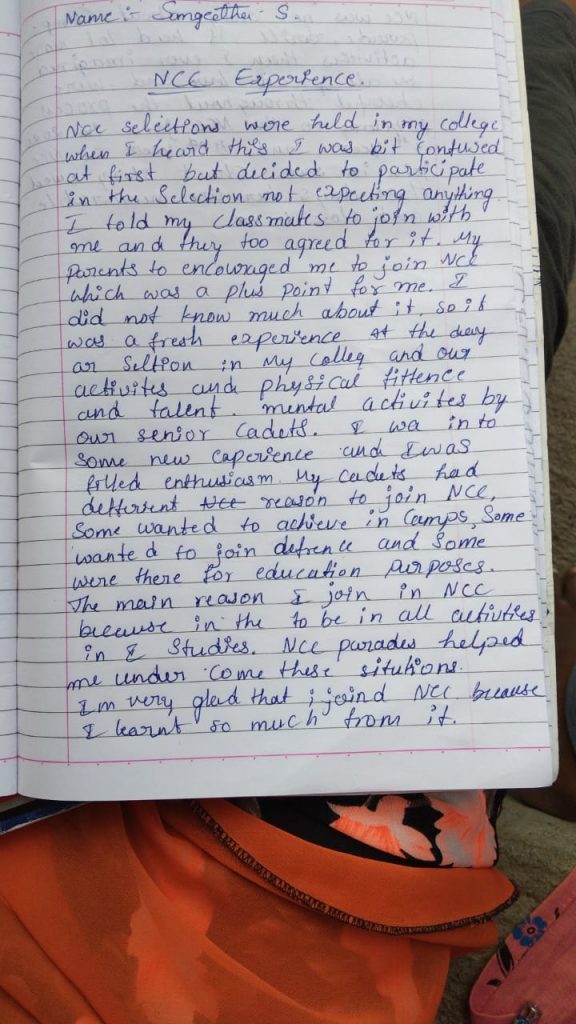 Name :- Sangeetha S
NCC Experience.
Ncc selections were held in my college
when I heard this I was bit confused
at first but decided to participate
in the Selection not expecting anything.
I told my classmates to join with
me and they too agreed for it. My
parents to encouraged me to join NCC
which was a plus point for me. I
did not know much about it, so it
was a fresh experience At the day
an Seltion in My colleg and our
activites and physical fittence
and talent. mental activites by
our senior Cadets. I wa in to
Some new experience and I was
filled enthusiasm. My cadets had
defferent Ncc reason to join NCC,
Some wanted to achieve in Camps, Some
wanted to join defrence and Some
were there for education purposes.
The main reason I join in NCC
because in the to be in all activities
in & Studies. NCC parades helped
me under come these situtions.
I'm very glad that i joind NCC because
I learnt so much from it.